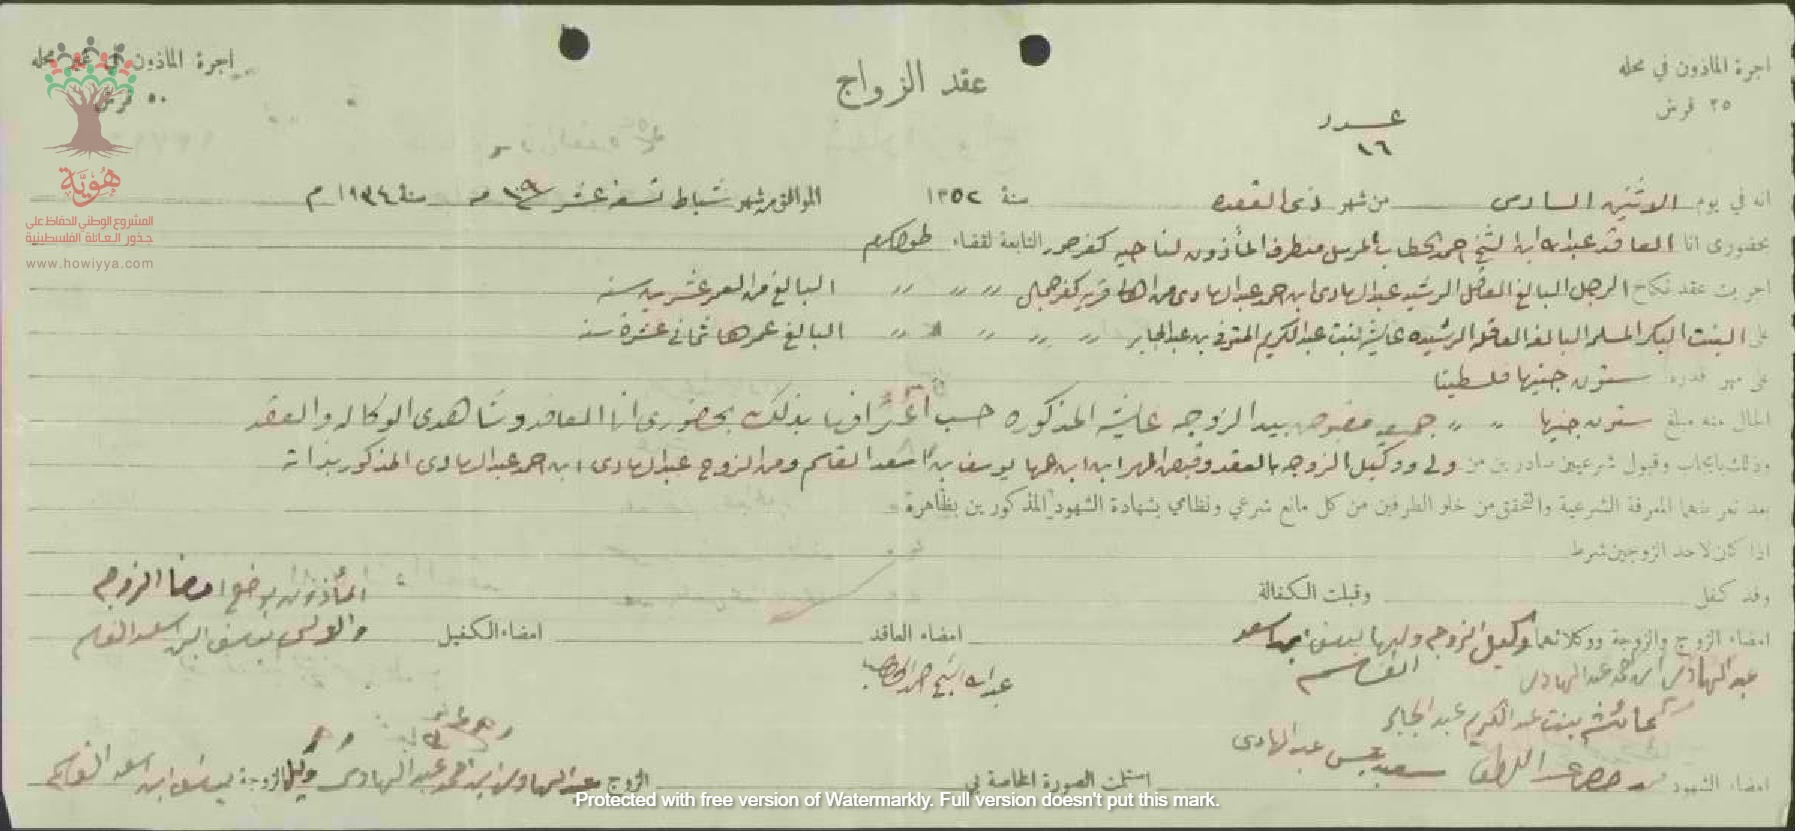 اجرة المأذون في محله
٢٥ قرش
عقد الزواج
اجرة المأذون في غير محله
٥٠ قرش
عدد
١٦
هُويّة
المشروع الوطني للحفاظ على
جذور العائلة الفلسطينية
www.howiyya.com
انه في يوم الاثنين السادس من شهر ذى القعده سنة ١٣٥٢ الموافق من شهر شباط تسعة عشر ١٩ سنة ١٩٣٤ م
بحضورى انا العاقد عبدالله ابن الشيخ احمد الخطاب المرسل من طرف المأذون لناحيه كفر صور التابعة لقضاء طولكرم
اجريت عقد نكاح الرجل البالغ العاقل الرشيد عبدالهادى ابن احمد عبدالهادى من اهالى قرية كفر جمال البالغ من العمر عشرين سنه
على البنت البكر المسلمه البالغه العاقله الرشيده عايشه بنت عبدالكريم المتوفى بن عبدالجابر البالغ عمرها ثمانى عشرة سنه
على مهر قدره ستون جنيها فلسطينيا
الحال منه مبلغ ستون جنيها جميعه مقبوض بيد الزوجه عايشه المذكوره حسب اعترافها بذلك بحضورى انا العاقد وشاهدى الوكاله والعقد
وذلك بايجاب وقبول شرعيين صادرين من ولى ووكيل الزوجه بالعقد وقبض المهر ابن ابن عمها يوسف بن اسعد القاسم ومن الزوج عبدالهادى ابن احمد عبدالهادى المذكور بذاته
بعد تعريفهما المعرفة الشرعية والتحقق من خلو الطرفين من كل مانع شرعي ونظامي بشهادة الشهود المذكورين بظاهرة
اذا كان لاحد الزوجين شرط
وقد كفل وقبلت الكفالة
المأذون بوضع امضا الزوجه
امضاء الزوج والزوجة ووكلائهما وكيل الزوجه وليها يوسف ابن اسعد القاسم
امضاء العاقد
امضاء الكفيل
والولى يوسف ابن اسعد القاسم
عبدالهادى ابن احمد عبدالهادى
عبدالله الشيخ احمد الخطاب
عائشه بنت عبدالكريم عبدالجابر
امضاء الشهود عبداللطيف سعيد عبدالهادى
استلمت الصورة الخاصة بي الزوج عبدالهادى ابن احمد عبدالهادى وكيل الزوجة يوسف ابن اسعد القاسم
Protected with free version of Watermarkly. Full version doesn't put this mark.